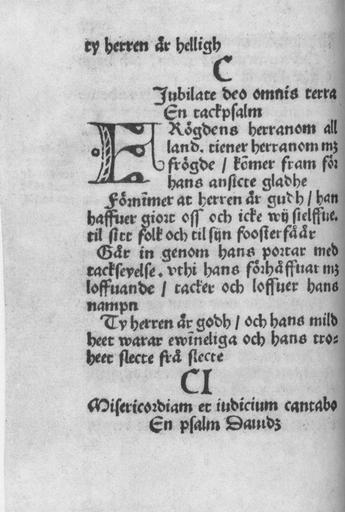 ty herren är helligh
C
Jubilate deo omnis terra
En tackpsalm
FRögdens herranom all
land. tiener herranom mz
frögde / kõmer fram för
hans ansicte gladhe
Förnĩmer at herren är gudh / han
haffuer giort oss och icke wij sielffue.
til sitt folk och til sijn foosterfåår
Går in genom hans portar med
tackseyelse. vthi hans förhäffuar mz
loffuande / tacker och loffuer hans
nampn
Ty herren är godh / och hans mild
heet warar ewĩneliga och hans tro⸗
heet slecte frå slecte
CI
Misericordiam et iudicium cantabo
En psalm Dauidz